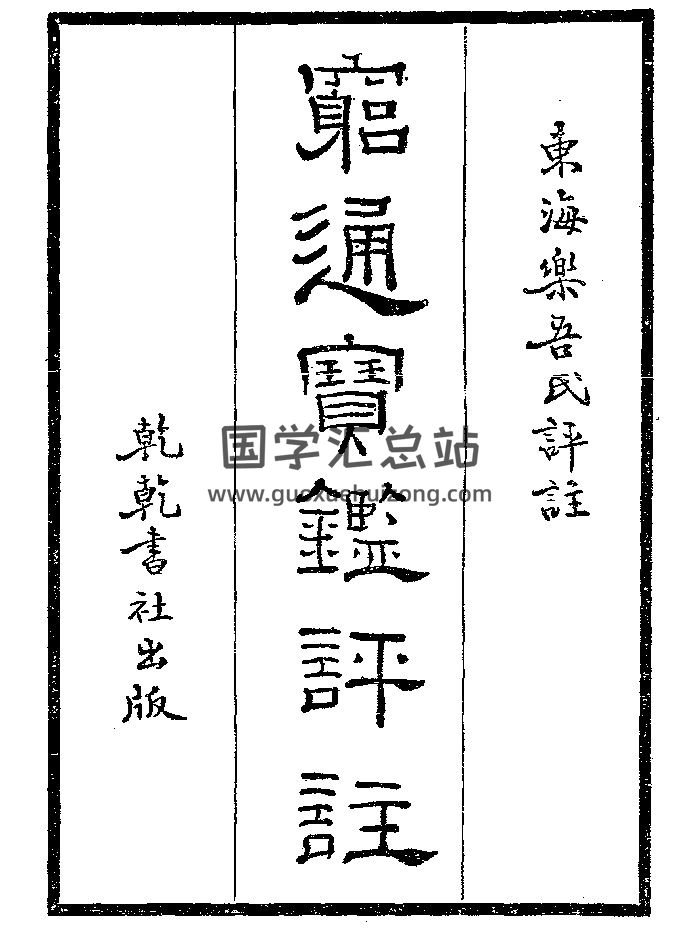 東海樂吾氏評註
窮通寶鑑評註
乾乾書社出版
国学汇总站
www.guoxuehuizong.com